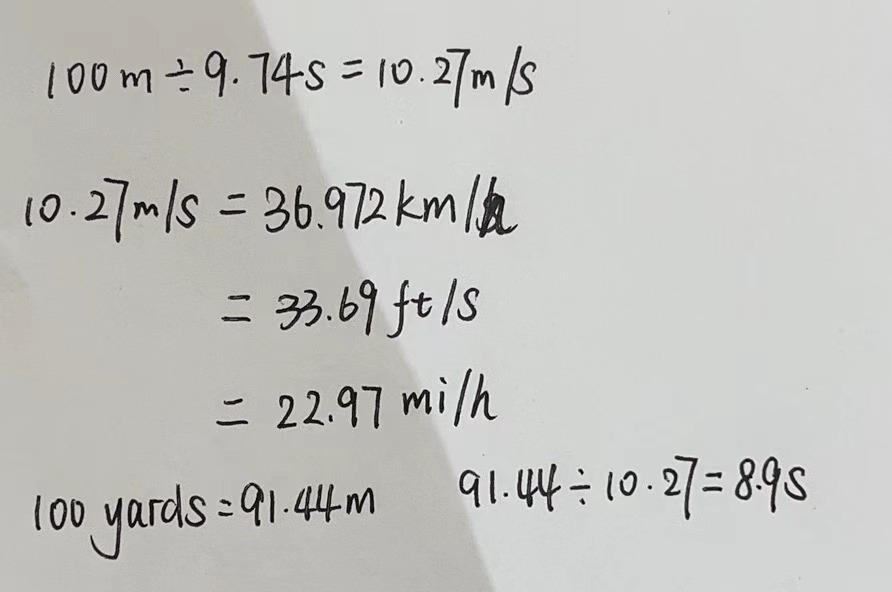 100m÷9.74s=10.27m/s
10.27m/s = 36.972km/h
= 33.69 ft/s
= 22.97 mi/h
100 yards=91.44m 91.44÷10.27=8.9s